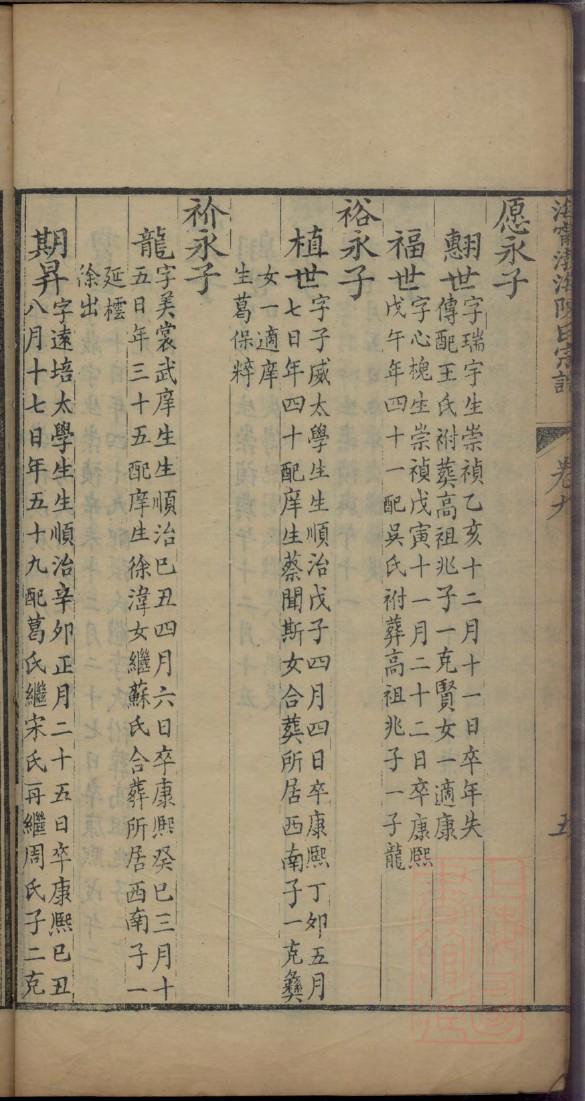 海寧渤海陳氏宗譜
卷九
五
愿永子
翿世字瑞宇生崇禎乙亥十二月十一日卒年失
傳配王氏祔葬高祖兆子一克賢女一適康
福世字心槐生崇禎戊寅十一月二十二日卒康熙
戊午年四十一配吳氏祔葬高祖兆子一子龍
裕永子
植世字子威太學生生順治戊子四月四日卒康熙丁卯五月
七日年四十配庠生蔡聞斯女合葬所居西南子一克彝
女一適庠
生葛保粹
衸永子
龍字美裳武庠生生順治己丑四月六日卒康熙癸巳三月十
五日年三十五配庠生徐漳女繼蘇氏合葬所居西南子一
延橒
涂出
期昇字遠培太學生生順治辛卯正月二十五日卒康熙己丑
八月十七日年五十九配葛氏繼宋氏再繼周氏子二克